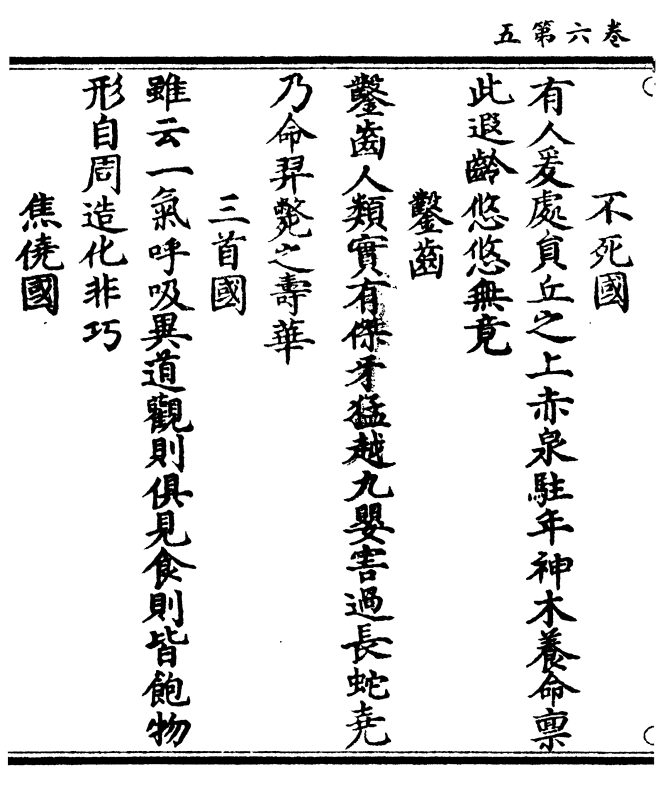 卷六第五
不死國
有人爰處員丘之上赤泉駐年神木養命禀
此遐齡悠悠無竟
鑿齒
鑿齒人類實有傑牙猛越九嬰害過長蛇堯
乃命羿斃之壽華
三首國
雖云一氣呼吸異道觀則俱見食則皆飽物
形自周造化非巧
焦僥國